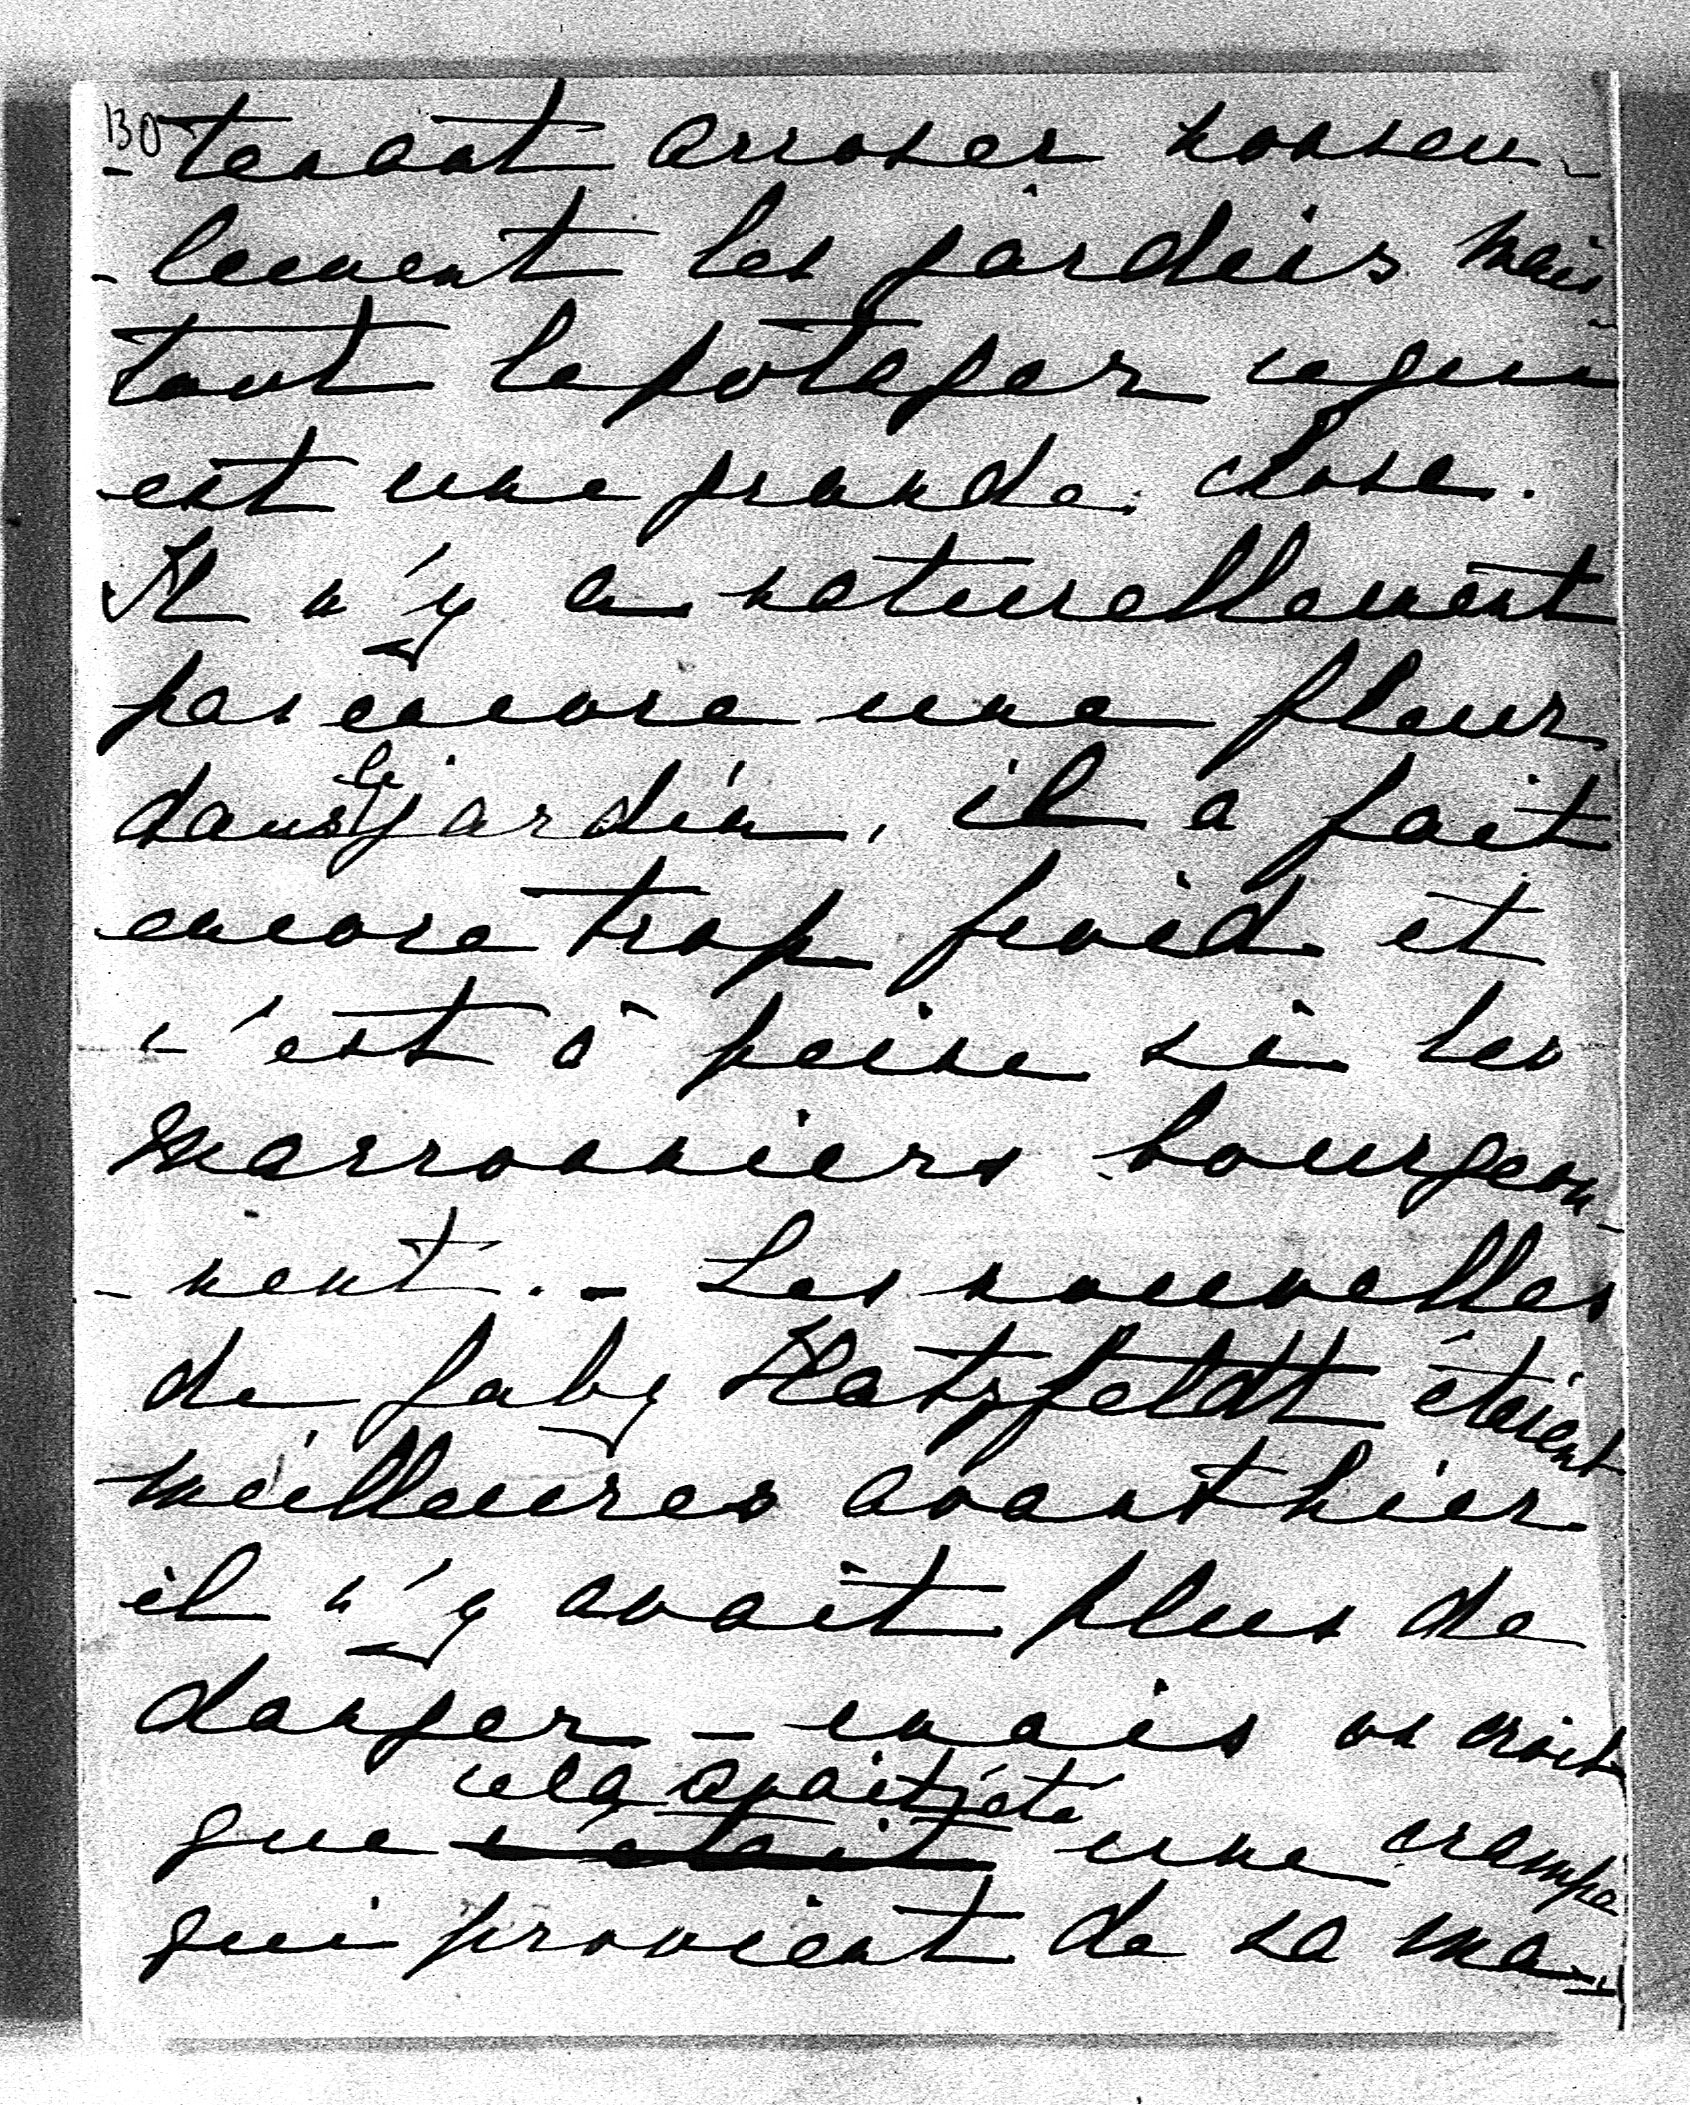 130
-tenant arroser nonseu-
-lement les jardins mais
tout le potager ce qui
est une grande chose.
Il n'y a naturellement
pas encore une fleur
dans le jardin, il a fait
encore trop froid et
c'est à peine si les
marronniers bourgeon-
-nent. - Les nouvelles
de Gaby Hatzfeldt étaient
meilleures avant hier
il n'y avait plus de
danger - mais on croit
cela avait été
que c'était une crampe
qui provient de sa ma-